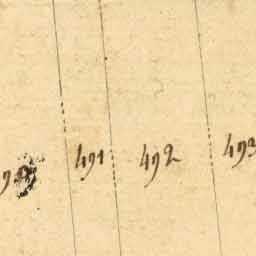 491
492
493